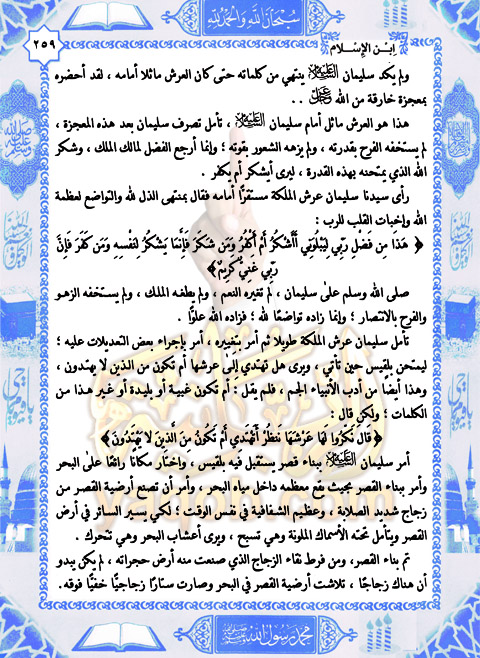 سبحان الله والحمد لله
٢٥٩
ابن الإسلام
ولم يكد سليمان ينتهي من كلماته حتى كان العرش ماثلا أمامه ، لقد أحضره
بمعجزة خارقة من الله . .
هذا هو العرش ماثل أمام سليمان ، تأمل تصرف سليمان بعد هذه المعجزة ،
لم يستخفه الفرح بقدرته ، ولم يزهه الشعور بقوته ؛ وإنما أرجع الفضل لمالك الملك ، وشكر
الله الذي يمتحنه بهذه القدرة ، ليرى أيشكر أم يكفر .
رأى سيدنا سليمان عرش الملكة مستقرًّا أمامه فقال بمنتهى الذل لله والتواضع لعظمة
الله وإخبات القلب للرب :
﴿ هَذَا مِن فَضْلِ رَبِّي لِيَبْلُوَنِي أَأَشْكُرُ أَمْ أَكْفُرُ وَمَن شَكَرَ فَإِنَّمَا يَشْكُرُ لِنَفْسِهِ وَمَن كَفَرَ فَإِنَّ
رَبِّي غَنِيٌّ كَرِيمٌ ﴾
صلى الله وسلم على سليمان ، لم تغيره النعم ، ولم يطغه الملك ، ولم يستخفه الزهو
والفرح بالانتصار ؛ وإنما زاده تواضعًا لله ؛ فزاده الله علوًّا .
تأمل سليمان عرش الملكة طويلا ثم أمر بتغييره ، أمر بإجراء بعض التعديلات عليه ؛
ليمتحن بلقيس حين تأتي ، ويرى هل تهتدي إلى عرشها أم تكون من الذين لا يهتدون ،
وهذا أيضًا من أدب الأنبياء الجم ، فلم يقل : أم تكون غبية أو بليدة أو غير هذا من
الكلمات ؛ ولكن قال :
﴿ قَالَ نَكِّرُوا لَهَا عَرْشَهَا نَنظُرْ أَتَهْتَدِي أَمْ تَكُونُ مِنَ الَّذِينَ لَا يَهْتَدُونَ ﴾
أمر سليمان ببناء قصر يستقبل فيه بلقيس ، واختار مكانًا رائعًا على البحر
وأمر ببناء القصر بحيث يقع معظمه داخل مياه البحر ، وأمر أن تصنع أرضية القصر من
زجاج شديد الصلابة ، وعظيم الشفافية في نفس الوقت ؛ لكي يسير السائر في أرض
القصر ويتأمل تحته الأسماك الملونة وهي تسبح ، ويرى أعشاب البحر وهي تتحرك .
تم بناء القصر ، ومن فرط نقاء الزجاج الذي صنعت منه أرض حجراته ، لم يكن يبدو
أن هناك زجاجًا ، تلاشت أرضية القصر في البحر وصارت ستارًا زجاجيًّا خفيًّا فوقه .
محمد رسول الله